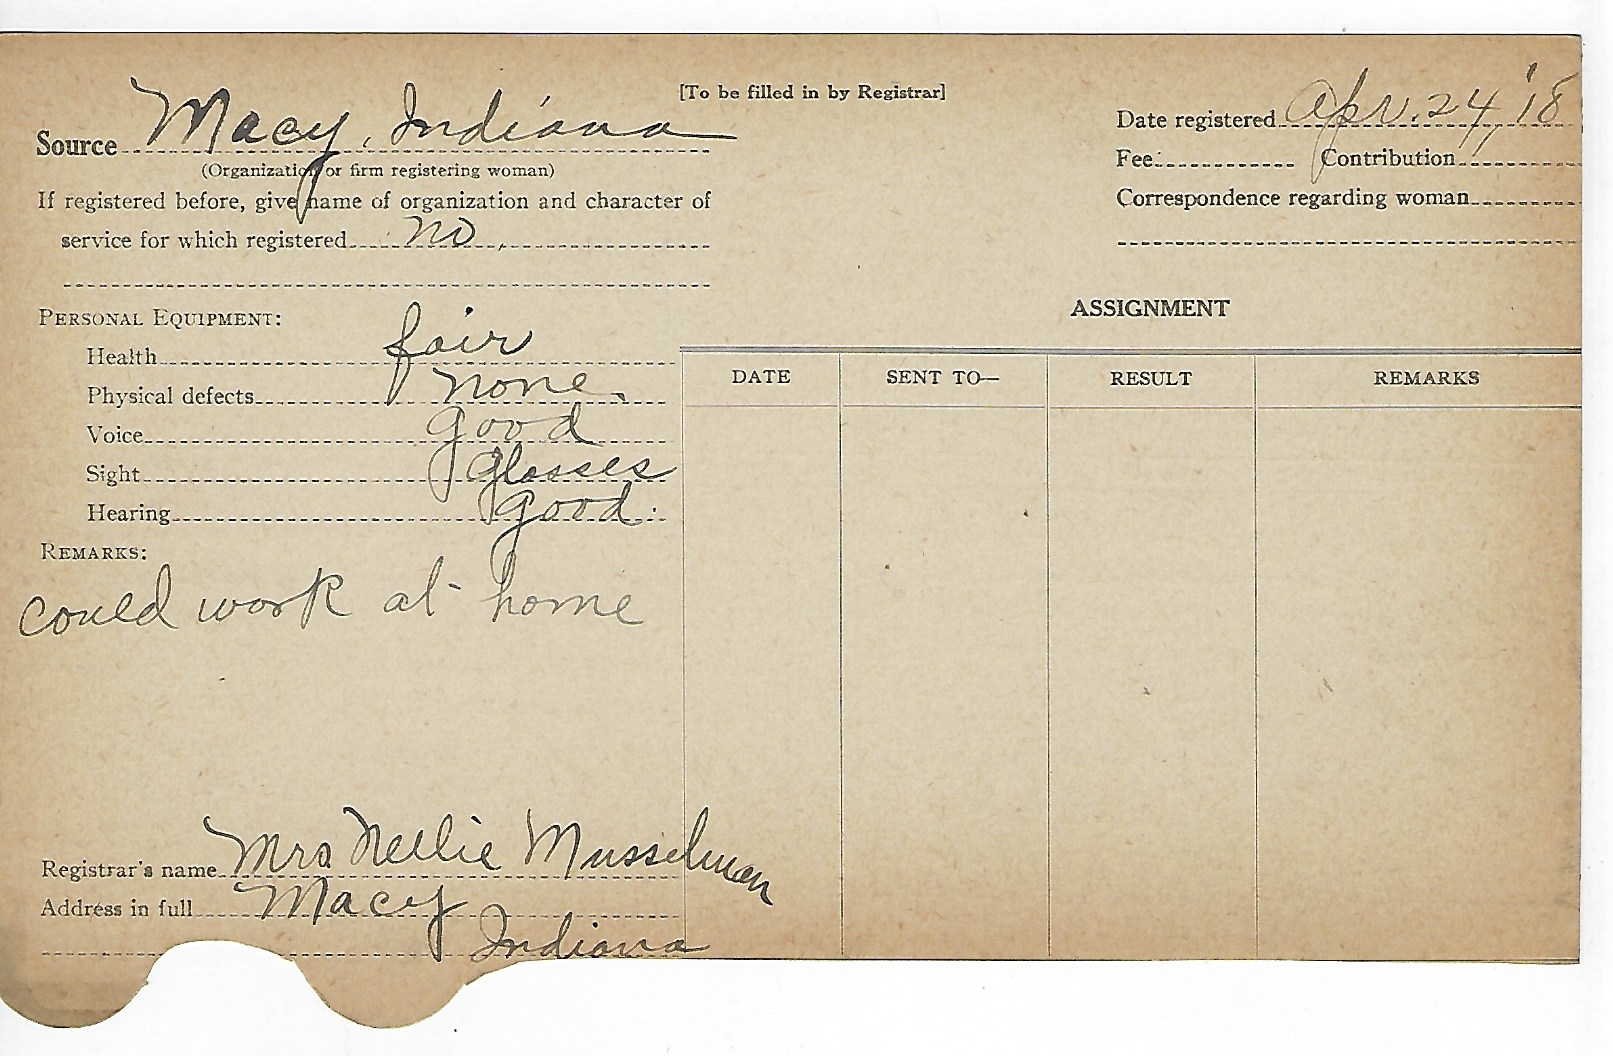 [To be filled in by Registrar]
Source Macy, Indiana
(Organization or firm registering woman)
If registered before, give name of organization and character of
service for which registered no.
Date registered Apr. 24, '18
Fee Contribution
Correspondence regarding woman
PERSONAL EQUIPMENT:
Health fair
Physical defects none.
Voice good
Sight glasses
Hearing good.
REMARKS:
could work at home
Registrar's name Mrs Nellie Musselman
Address in full Macy
Indiana
ASSIGNMENT
DATE SENT TO— RESULT REMARKS